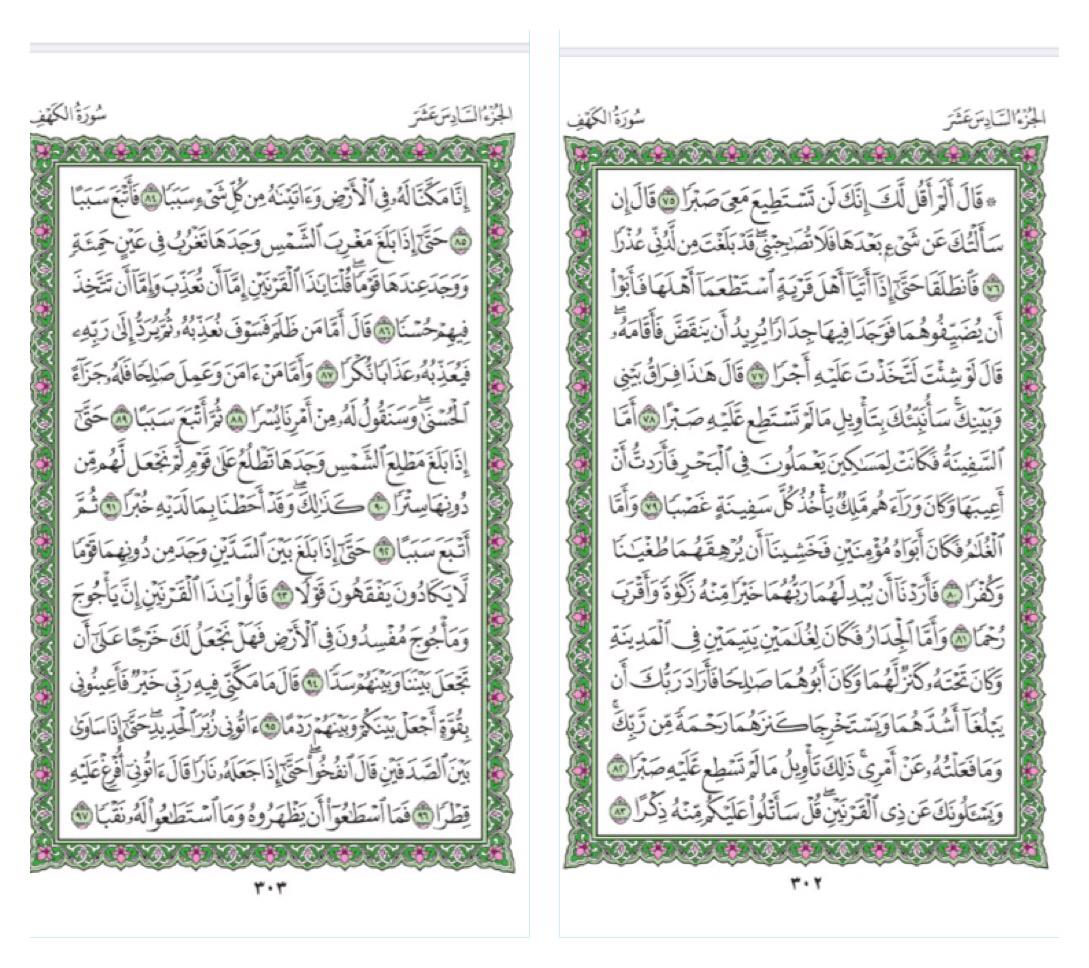 الجزء السادس عشر
سورة الكهف
۞ قَالَ أَلَمْ أَقُل لَّكَ إِنَّكَ لَن تَسْتَطِيعَ مَعِيَ صَبْرًا ٧٥ قَالَ إِن
سَأَلْتُكَ عَن شَيْءٍ بَعْدَهَا فَلَا تُصَاحِبْنِي ۖ قَدْ بَلَغْتَ مِن لَّدُنِّي عُذْرًا
٧٦ فَانطَلَقَا حَتَّىٰ إِذَا أَتَيَا أَهْلَ قَرْيَةٍ اسْتَطْعَمَا أَهْلَهَا فَأَبَوْا
أَن يُضَيِّفُوهُمَا فَوَجَدَا فِيهَا جِدَارًا يُرِيدُ أَن يَنقَضَّ فَأَقَامَهُ ۖ
قَالَ لَوْ شِئْتَ لَتَّخَذْتَ عَلَيْهِ أَجْرًا ٧٧ قَالَ هَٰذَا فِرَاقُ بَيْنِي
وَبَيْنِكَ ۚ سَأُنَبِّئُكَ بِتَأْوِيلِ مَا لَمْ تَسْتَطِع عَّلَيْهِ صَبْرًا ٧٨ أَمَّا
السَّفِينَةُ فَكَانَتْ لِمَسَاكِينَ يَعْمَلُونَ فِي الْبَحْرِ فَأَرَدتُّ أَنْ
أَعِيبَهَا وَكَانَ وَرَاءَهُم مَّلِكٌ يَأْخُذُ كُلَّ سَفِينَةٍ غَصْبًا ٧٩ وَأَمَّا
الْغُلَامُ فَكَانَ أَبَوَاهُ مُؤْمِنَيْنِ فَخَشِينَا أَن يُرْهِقَهُمَا طُغْيَانًا
وَكُفْرًا ٨٠ فَأَرَدْنَا أَن يُبْدِلَهُمَا رَبُّهُمَا خَيْرًا مِّنْهُ زَكَاةً وَأَقْرَبَ
رُحْمًا ٨١ وَأَمَّا الْجِدَارُ فَكَانَ لِغُلَامَيْنِ يَتِيمَيْنِ فِي الْمَدِينَةِ
وَكَانَ تَحْتَهُ كَنزٌ لَّهُمَا وَكَانَ أَبُوهُمَا صَالِحًا فَأَرَادَ رَبُّكَ أَن
يَبْلُغَا أَشُدَّهُمَا وَيَسْتَخْرِجَا كَنزَهُمَا رَحْمَةً مِّن رَّبِّكَ ۚ
وَمَا فَعَلْتُهُ عَنْ أَمْرِي ۚ ذَٰلِكَ تَأْوِيلُ مَا لَمْ تَسْطِع عَّلَيْهِ صَبْرًا ٨٢
وَيَسْأَلُونَكَ عَن ذِي الْقَرْنَيْنِ ۖ قُلْ سَأَتْلُو عَلَيْكُم مِّنْهُ ذِكْرًا ٨٣
٣٠٢
الجزء السادس عشر
سورة الكهف
إِنَّا مَكَّنَّا لَهُ فِي الْأَرْضِ وَآتَيْنَاهُ مِن كُلِّ شَيْءٍ سَبَبًا ٨٤ فَأَتْبَعَ سَبَبًا
٨٥ حَتَّىٰ إِذَا بَلَغَ مَغْرِبَ الشَّمْسِ وَجَدَهَا تَغْرُبُ فِي عَيْنٍ حَمِئَةٍ
وَوَجَدَ عِندَهَا قَوْمًا ۗ قُلْنَا يَا ذَا الْقَرْنَيْنِ إِمَّا أَن تُعَذِّبَ وَإِمَّا أَن تَتَّخِذَ
فِيهِمْ حُسْنًا ٨٦ قَالَ أَمَّا مَن ظَلَمَ فَسَوْفَ نُعَذِّبُهُ ثُمَّ يُرَدُّ إِلَىٰ رَبِّهِ
فَيُعَذِّبُهُ عَذَابًا نُّكْرًا ٨٧ وَأَمَّا مَنْ آمَنَ وَعَمِلَ صَالِحًا فَلَهُ جَزَاءً
الْحُسْنَىٰ ۖ وَسَنَقُولُ لَهُ مِنْ أَمْرِنَا يُسْرًا ٨٨ ثُمَّ أَتْبَعَ سَبَبًا ٨٩ حَتَّىٰ
إِذَا بَلَغَ مَطْلِعَ الشَّمْسِ وَجَدَهَا تَطْلُعُ عَلَىٰ قَوْمٍ لَّمْ نَجْعَل لَّهُم مِّن
دُونِهَا سِتْرًا ٩٠ كَذَٰلِكَ وَقَدْ أَحَطْنَا بِمَا لَدَيْهِ خُبْرًا ٩١ ثُمَّ
أَتْبَعَ سَبَبًا ٩٢ حَتَّىٰ إِذَا بَلَغَ بَيْنَ السَّدَّيْنِ وَجَدَ مِن دُونِهِمَا قَوْمًا
لَّا يَكَادُونَ يَفْقَهُونَ قَوْلًا ٩٣ قَالُوا يَا ذَا الْقَرْنَيْنِ إِنَّ يَأْجُوجَ
وَمَأْجُوجَ مُفْسِدُونَ فِي الْأَرْضِ فَهَلْ نَجْعَلُ لَكَ خَرْجًا عَلَىٰ أَن
تَجْعَلَ بَيْنَنَا وَبَيْنَهُمْ سَدًّا ٩٤ قَالَ مَا مَكَّنِّي فِيهِ رَبِّي خَيْرٌ فَأَعِينُونِي
بِقُوَّةٍ أَجْعَلْ بَيْنَكُمْ وَبَيْنَهُمْ رَدْمًا ٩٥ آتُونِي زُبَرَ الْحَدِيدِ ۖ حَتَّىٰ إِذَا سَاوَىٰ
بَيْنَ الصَّدَفَيْنِ قَالَ انفُخُوا ۖ حَتَّىٰ إِذَا جَعَلَهُ نَارًا قَالَ آتُونِي أُفْرِغْ عَلَيْهِ
قِطْرًا ٩٦ فَمَا اسْطَاعُوا أَن يَظْهَرُوهُ وَمَا اسْتَطَاعُوا لَهُ نَقْبًا ٩٧
٣٠٣